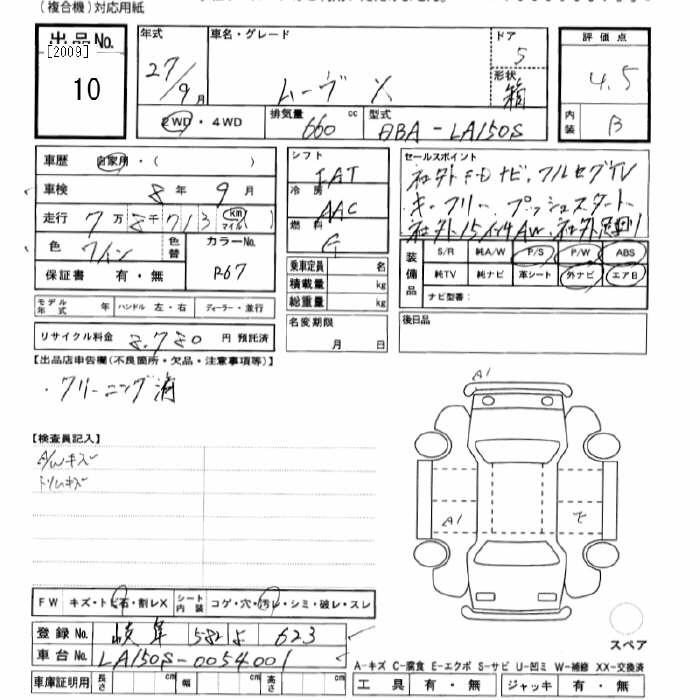 (複合機)対応用紙
出品No.
[2009]
10
年式
27/9月
車名・グレード
ムーヴ X
ドア
5
形状
箱
評価点
4.5
内装
B
2WD・4WD
排気量
660 cc
型式
DBA-LA150S
車歴 自家用・( )
車検 8年 9月
走行 7万8千713 km マイル )
色 ワイン
色替
カラーNo.
R67
保証書 有・無
モデル年式 年 ハンドル 左・右 ディーラー・並行
リサイクル料金 8,780 円 預託済
シフト
IAT
冷房
AAC
燃料
G
乗車定員 名
積載量 kg
総重量 kg
名変期限
月 日
セールスポイント
社外F-Dナビ、フルセグTV
キーフリー プッシュスタート
社外15インチAW、社外
装備品
S/R 純A/W P/S P/W ABS
純TV 純ナビ 革シート 外ナビ エアB
ナビ型番:
後日品
【出品店申告欄(不良箇所・欠品・注意事項等)】
・クリーニング済
【検査員記入】
A/Wキズ
トリムキズ
A1
A1
FW キズ・トビ石・割レX
シート内装 コゲ・穴・汚レ・シミ・破レ・スレ
登録No. 岐阜 582 よ 623
車台No. LA150S-0054001
車庫証明用 長さ cm 幅 cm 高さ cm
スペア
A-キズ C-腐食 E-エクボ S-サビ U-凹ミ W-補修 XX-交換済
工具 有・無 ジャッキ 有・無